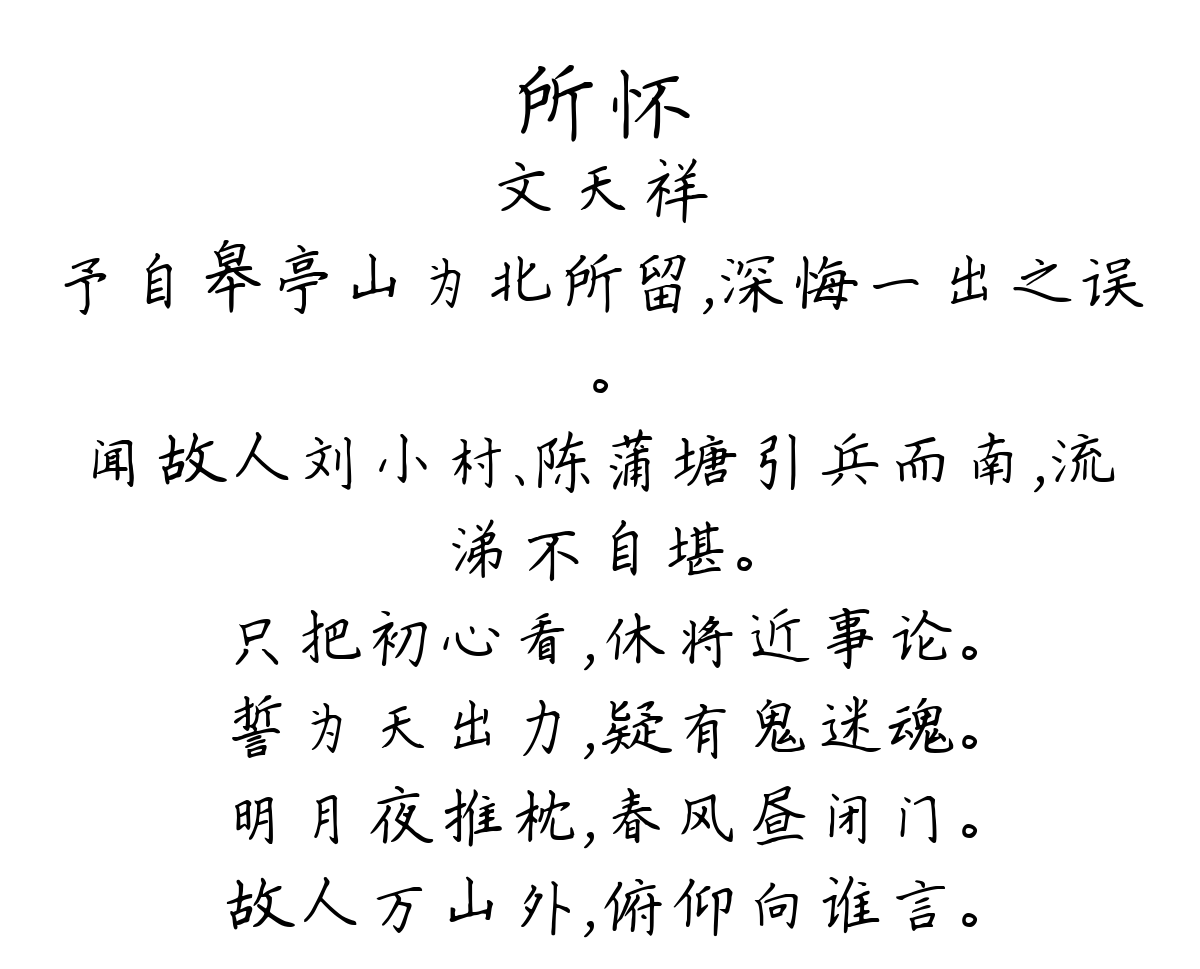 所怀
文天祥
予自皋亭山为北所留,深悔一出之误
。
闻故人刘小村、陈蒲塘引兵而南,流
涕不自堪。
只把初心看,休将近事论。
誓为天出力,疑有鬼迷魂。
明月夜推枕,春风昼闭门。
故人万山外,俯仰向谁言。